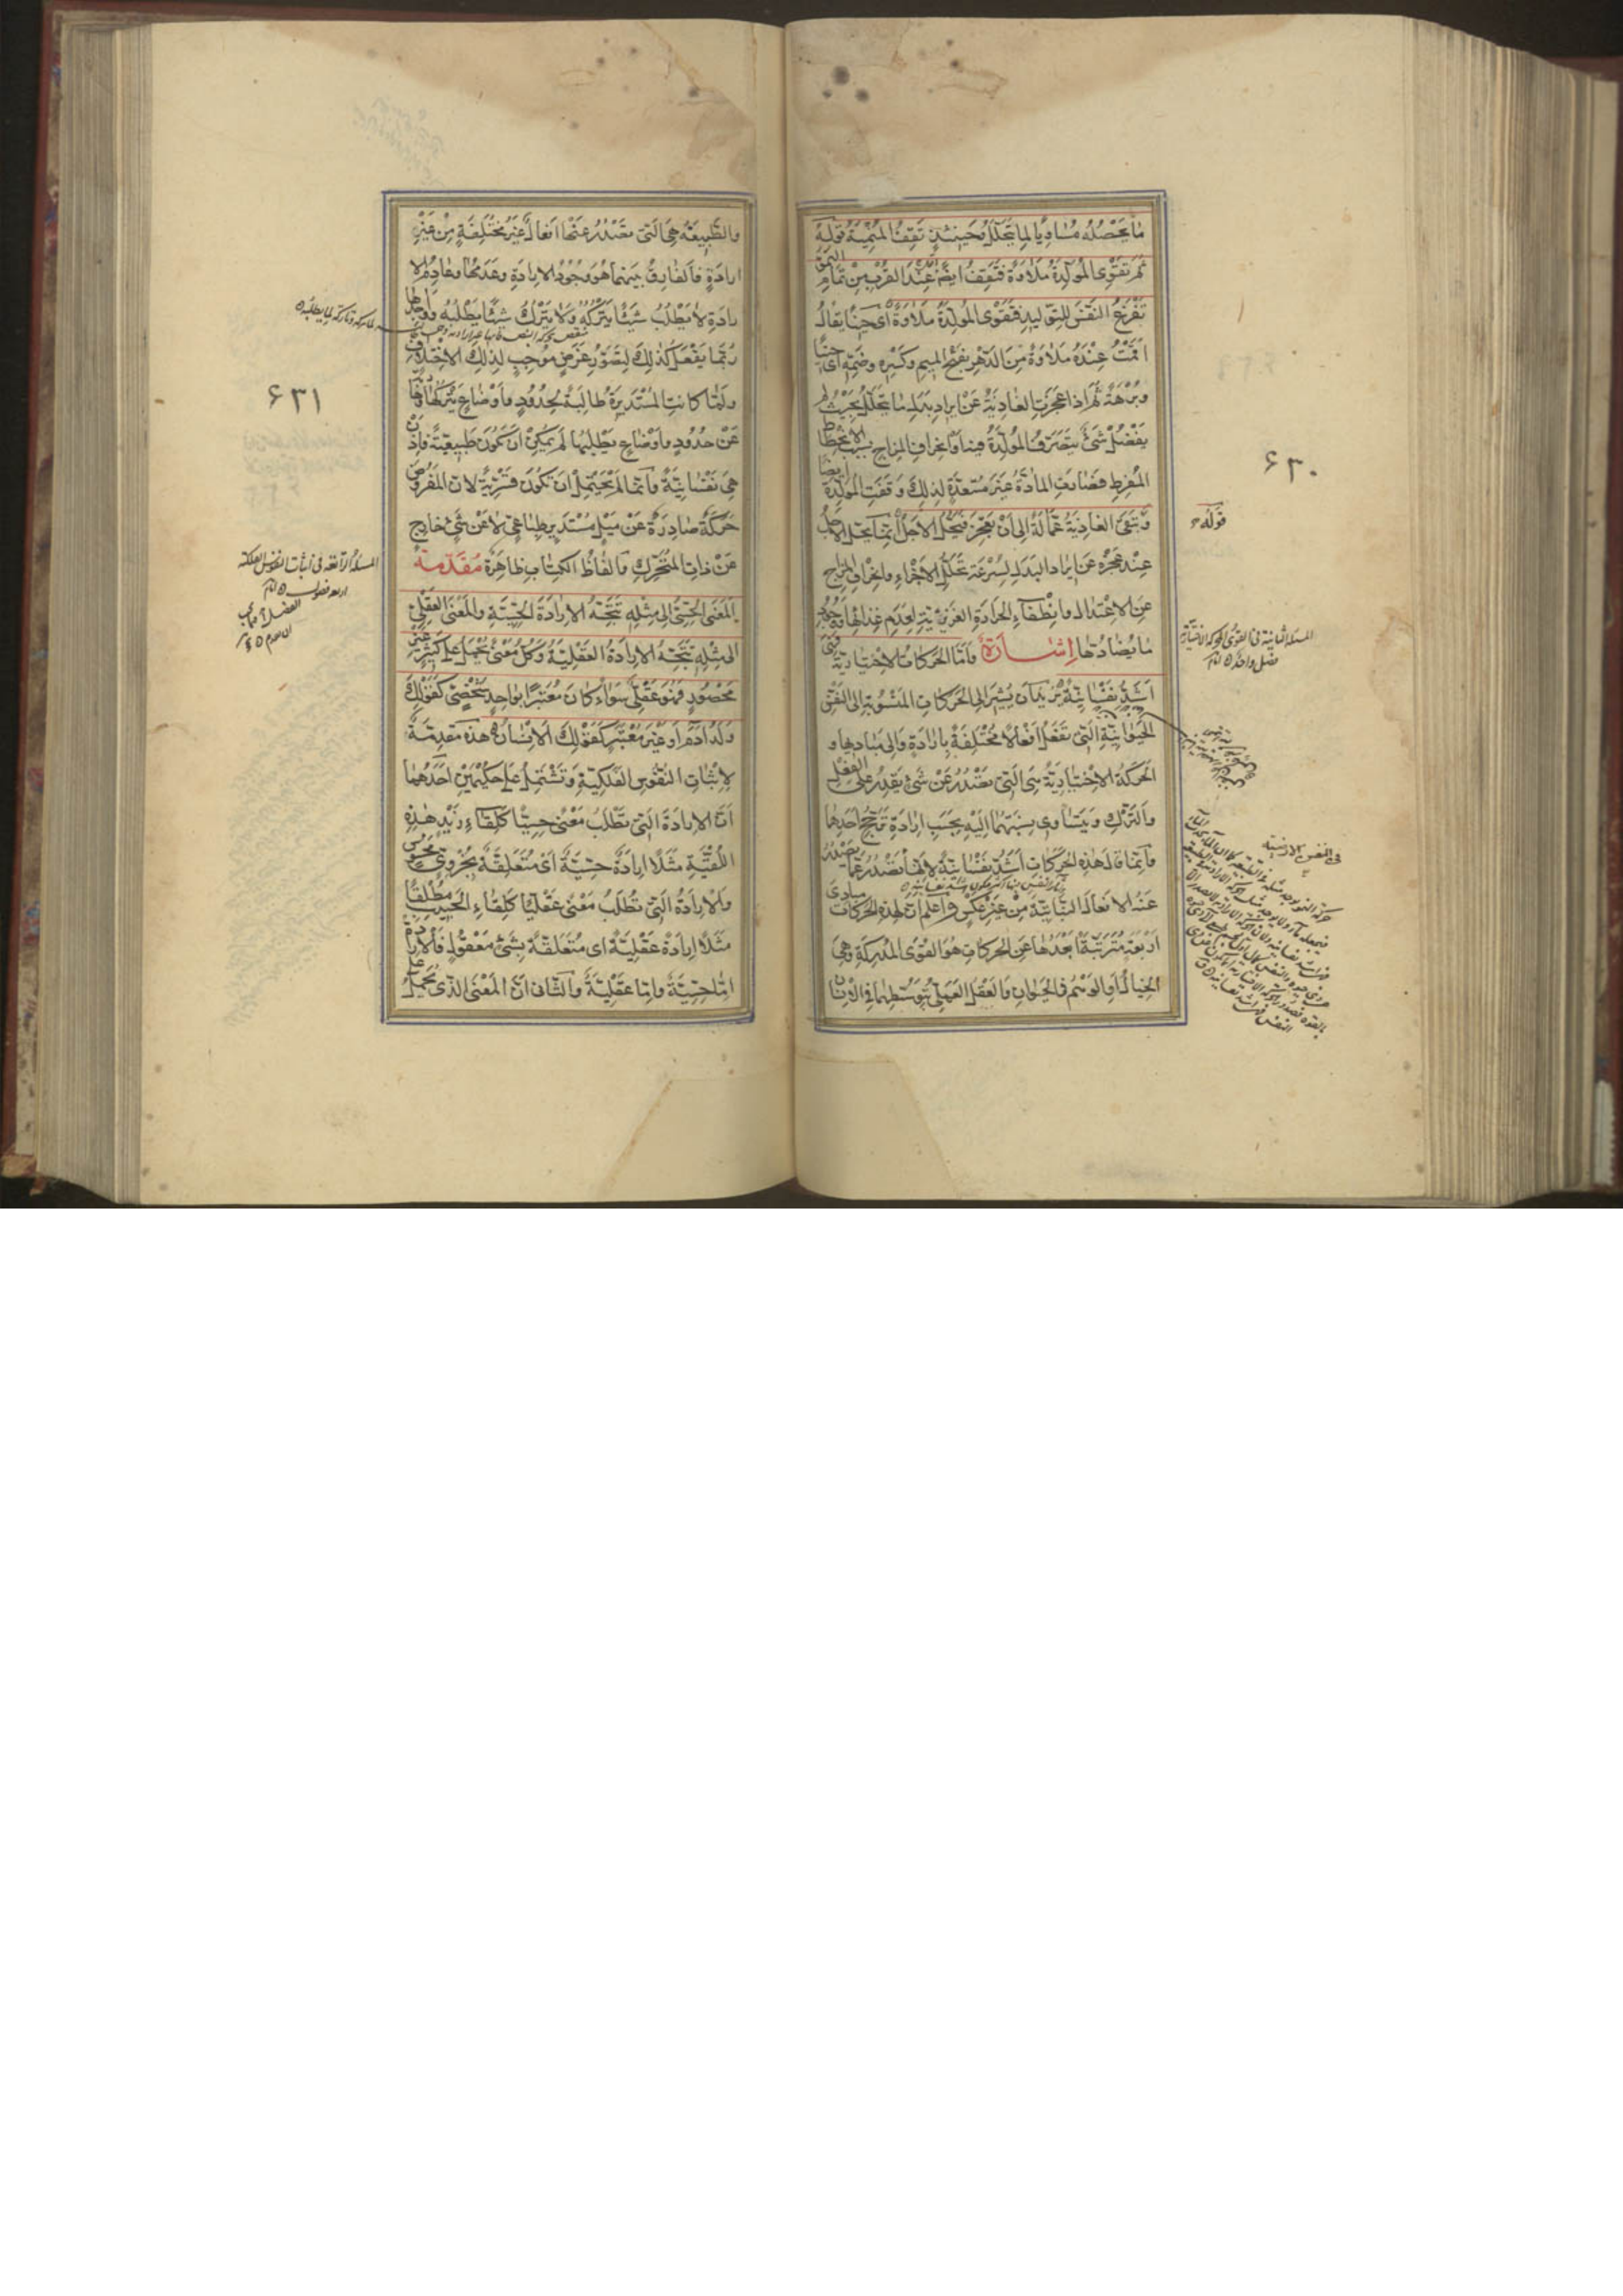 ما يحصله مساويا لما يتحلل فحينئذ تقف المنمية قوله
ثم تقوى المولدة ملاوة فتقف ايضا عند القرب من تمام النمو
تفرغ النفس للتوليد فتقوى المولدة ملاوة أى حينا يقال
اقمت عنده ملاوة من الدهر بفتح الميم وكسره وضمه اى حينا
وبرهة ثم اذا عجزت الغاذية عن ايراد بدل ما يتحلل بحيث لم
يفضل شىء يتصرف المولدة فيه او انحراف المزاج بسبب الانحطاط
المفرط فصارت المادة غير مستعدة لذلك وقفت المولدة ايضا
وتبقى الغاذية عمالة الى ان تعجز فيحل الاجل انما يحل الاجل
عند عجزه عن ايراد البدل لسرعة تحلل الاجزاء وانحراف المزاج
عن الاعتدال وانطفاء الحرارة الغريزية لعدم غذائها ووجود
ما يضادها اشارة واما الحركات الاختيارية فهى
اشد نفسانية يريد ان يشير الى الحركات المنسوبة الى النفس
الحيوانية التى تفعل افعالا مختلفة بارادة والى مباديها و
الحركة الاختيارية هى التى تصدر عن شىء يقدر على الفعل
والترك ويتساوى نسبتهما اليه بحسب ارادة ترجح احدهما
وانما قال هذه الحركات اشد نفسانية لانها تصدر عما يصدر
عنه الافعال النباتية من غير عكس واعلم ان لهذه الحركات مبادى
اربعة مترتبة ابعدها عن الحركات هو القوى المدركة وهى
الخيال أو الوهم فى الحيوان والعقل العملى بتوسطهما فى الانسان
۶۳۰
قوله
المسئلة الثانية فى القوى المحركة الاختيارية
فصل واحد
فى النفس الارضية
والطبيعة هى التى تصدر عنها افعال غير مختلفة من غير
ارادة فالفارق بينهما هو وجود الارادة وعدمها وعادم الا
رادة لا يطلب شيئا يتركه ولا يترك شيئا يطلبه وواجدها
ربما يفعل كذلك لتصور غرض موجب لذلك الاختلاف
ولما كانت المستديرة طالبة لحدود واوضاع يتركها وتاركة
عن حدود واوضاع يطلبها لم يمكن ان تكون طبيعية فاذن
هى نفسانية وانما لم يحتمل ان تكون قسرية لان المفروض
حركة صادرة عن ميل مستدير طباعى لا عن شىء خارج
عن ذات المتحرك والفاظ الكتاب ظاهرة مقدمة
المعنى الحسى الى مثله تتجه الارادة الحسية والمعنى العقلى
الى مثله تتجه الارادة العقلية وكل معنى يحمل على كثير غير
محصور فهو عقلى سواء كان معتبرا بواحد شخصى كقولك
ولد آدم او غير معتبر كقولك الانسان هذه مقدمة
لاثبات النفوس الفلكية وتشتمل على حكمين احدهما
ان الارادة التى تطلب معنى حسيا كلقاء زيد هذه
اللقية مثلا ارادة حسية أى متعلقة بجزوى محسوس
والارادة التى تطلب معنى عقليا كلقاء الحبيب مطلقا
مثلا ارادة عقلية اى متعلقة بشىء معقول فالارادة
اما حسية واما عقلية والثانى ان المعنى الذى يحمل على
۶۳۱
المسئلة الرابعة فى اثبات النفوس الفلكية
اربعة فصول